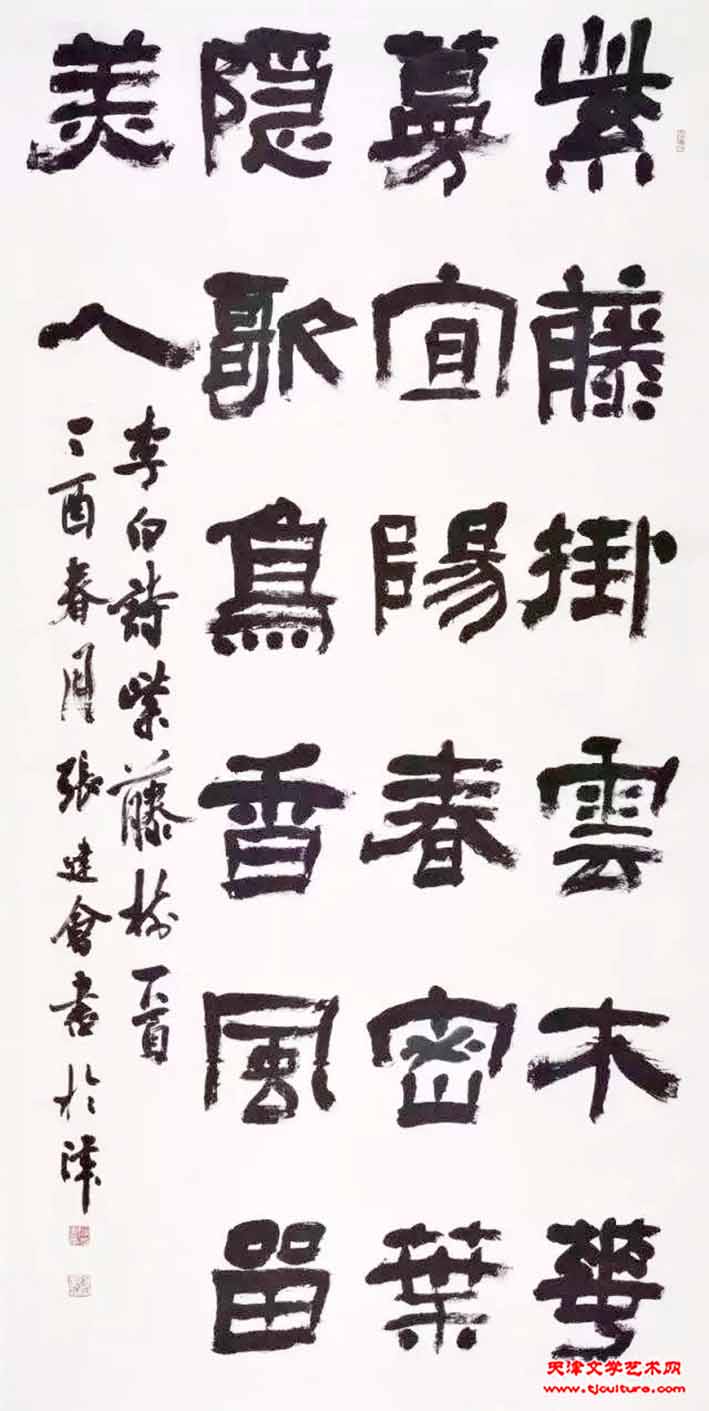 紫藤掛雲木華
蔓宜陽春密葉
隱歌鳥香風留
美人
李白詩紫藤樹一首
丁酉春月張建會書於津
天津文学艺术网
www.tjculture.com